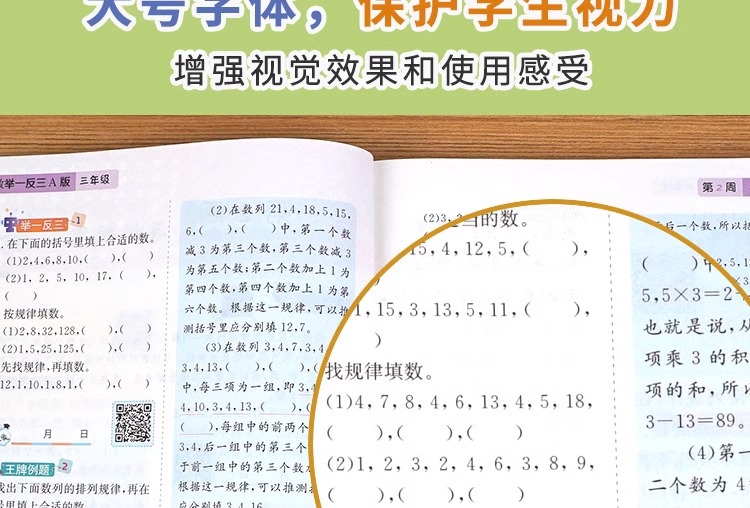 大号字体，保护学生视力
增强视觉效果和使用感受
举一反三A版 三年级
举一反三 1
.在下面的括号里填上合适的数。
(1)2,4,6,8,10,( ),( )
(2)1, 2, 5, 10, 17,( ),
( )
按规律填数。
(1)2,8,32,128,( ),( )
(2)1,5,25,125,( ),( )
先找规律,再填数。
12,1,10,1,8,1,( ),( )
月 日
王牌例题 2
找出下面数列的排列规律,再在
(2)在数列 21,4,18,5,15,
6,( ),( )中,第一个数
减 3 为第三个数,第三个数减 3
为第五个数;第二个数加上 1 为
第四个数,第四个数加上 1 为第
六个数。根据这一规律,可以推
测括号里应分别填 12,7。
(3)在数列 3,4,7,3,4
3,4,13,( ),( ),(
中,每三项为一组,即 3,4
4,10,3,4,13,( ),(
( ),每组中的前两个
3,4,后一组中的第三个
于前一组中的第三个数
根据这一规律,可以推测
应分别填 3,4,16
第 2 周
(2)3,
当的数。
15, 4, 12, 5,( ),
1, 15, 3, 13, 5, 11,( ),
)
找规律填数。
(1)4, 7, 8, 4, 6, 13, 4, 5, 18,
( ),( ),( )
(2)1, 2, 3, 2, 4, 6, 3, 8, 9,
( ),( ),( )
后一个数,所以括
( )中
2,5,13
5,5×3=2
也就是说,从
项乘 3 的积
项的和,所以
3-13=89。
(4)第一
二个数为 4